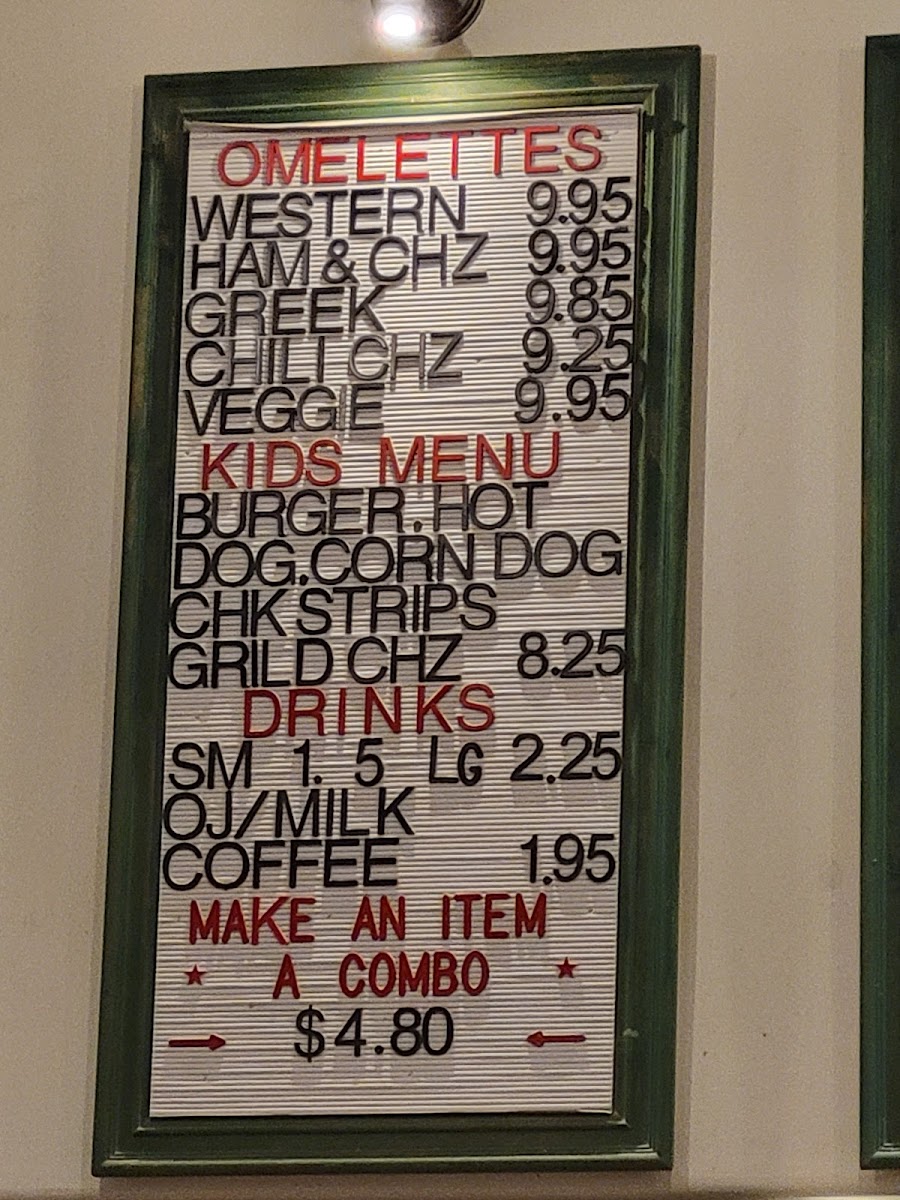 OMELETTES
WESTERN 9.95
HAM & CHZ 9.95
GREEK 9.85
CHILI CHZ 9.25
VEGGIE 9.95
KIDS MENU
BURGER.HOT
DOG.CORN DOG
CHK STRIPS
GRILD CHZ 8.25
DRINKS
SM 1. 5 LG 2.25
OJ/MILK
COFFEE 1.95
MAKE AN ITEM
A COMBO
$4.80